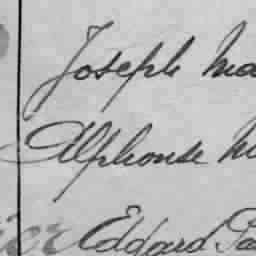 Joseph Ma
Alphonse M
Eddard Pa